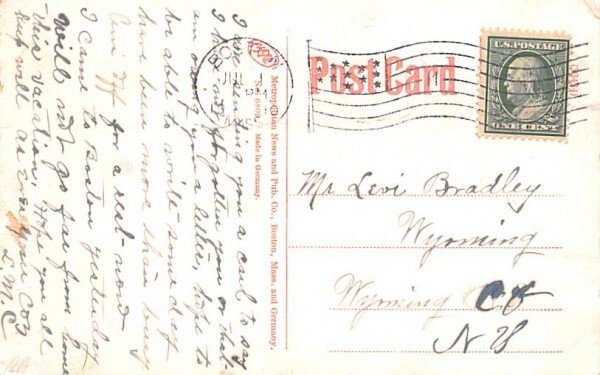 I am sending you a card to say
I have not forgotten you or that
am owing you a letter, hope to
be able to write some day
have been more than busy
Am off for a rest now
I came to Boston yesterday
Will not go far from home
this vacation, Hope you all
keep well as ever your Cos
L.M.C
Metropolitan News and Pub. Co., Boston, Mass. and Germany.
Made in Germany.
BOSTON
JUL
PM
MASS
Post Card
U.S. POSTAGE
ONE CENT
Mr Levi Bradley
Wyoming
Wyoming Co
N Y